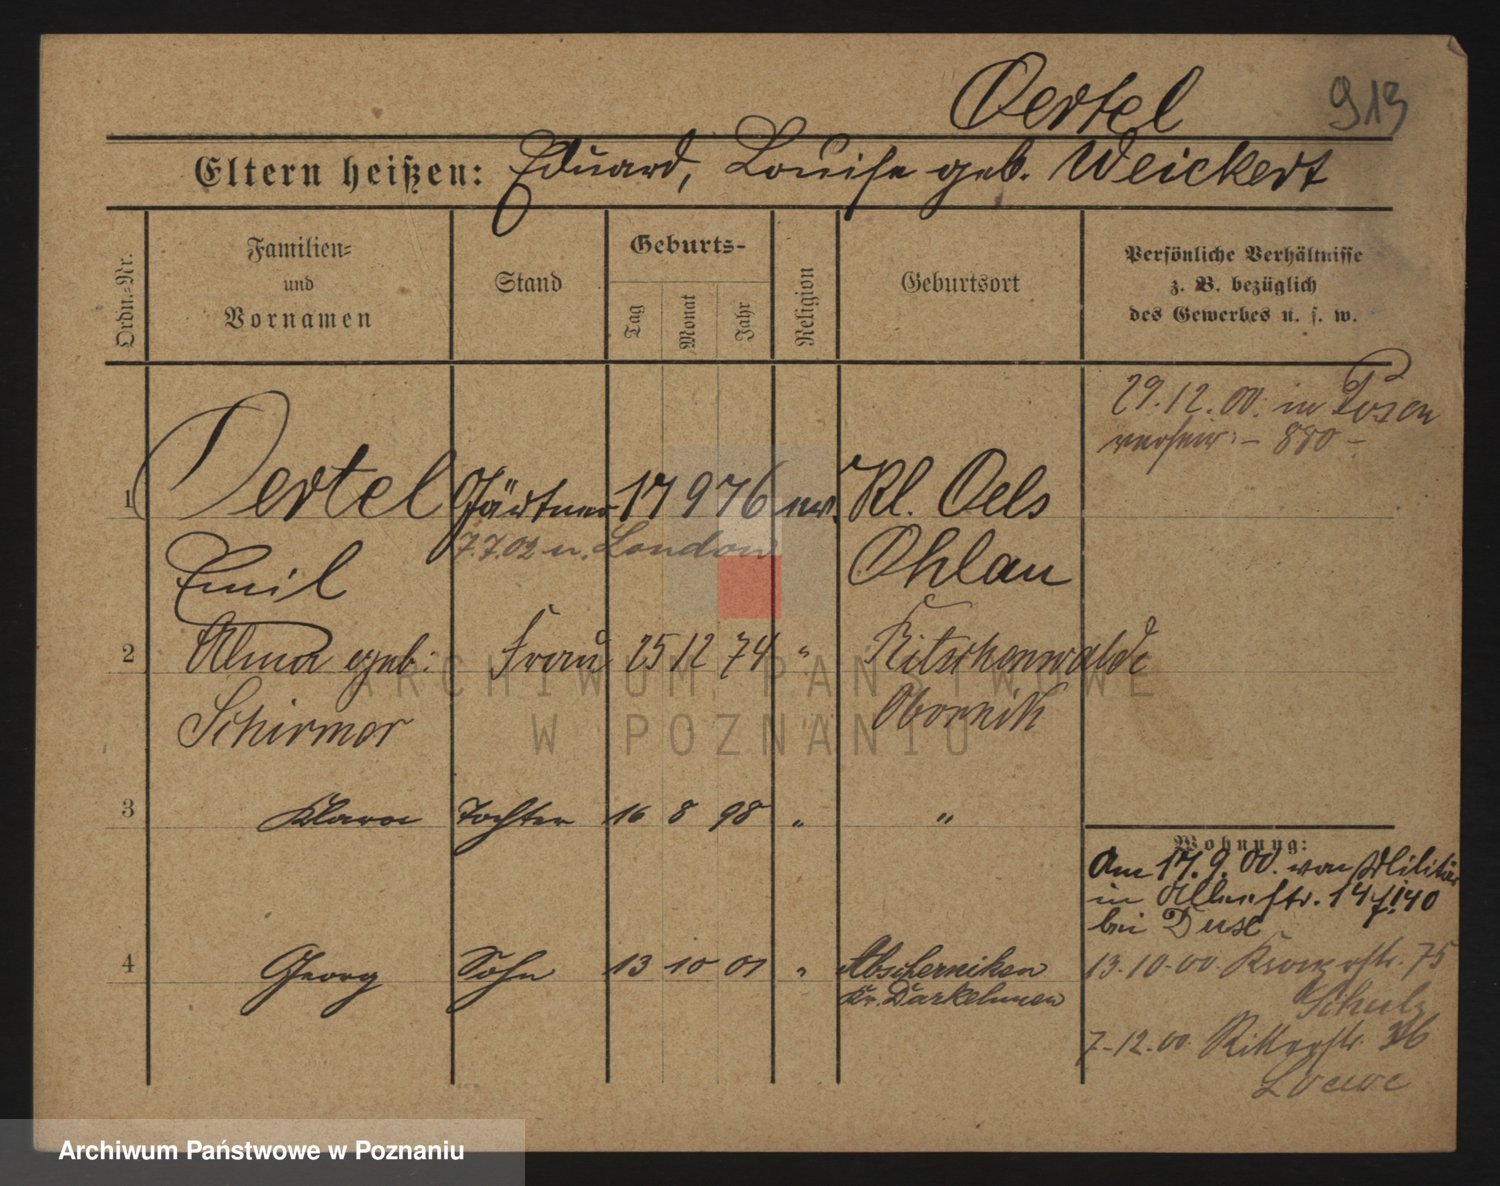 Oertel
913
Eltern heißen: Eduard, Louise geb. Weickert
Ordn.-Nr.
Familien-
und
Vornamen
Stand
Geburts-
Tag
Monat
Jahr
Religion
Geburtsort
Persönliche Verhältnisse
z. B. bezüglich
des Gewerbes u. s. w.
29.12.00. in Posen
verheir. - 880 -
1 Oertel Gärtner 17 9 76 ev. Kl. Oels
7.7.02 n. London
Emil Ohlau
2 Alma geb. Frau 25 12 74 " Ritschenwalde
Schirmer Obornik
3 Klara Tochter 16 8 98 " "
Wohnung:
Am 17.9.00. von Militär
in 14
bei
4 Georg Sohn 13 10 01 " Abscherniken
Kr. Darkehmen
13.10.00 75
Schulz
7.12.00 Ritterstr. 36
Loewe
ARCHIWUM PAŃSTWOWE
W POZNANIU
Archiwum Państwowe w Poznaniu